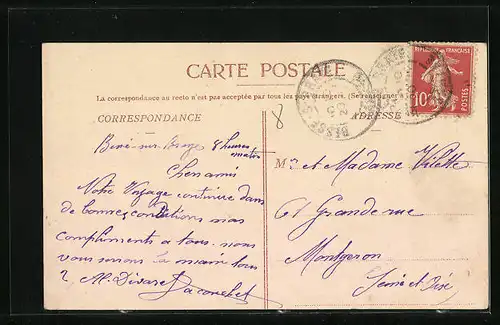 CARTE POSTALE
La correspondance au recto n'est pas acceptée par tous les pays étrangers. (Se renseigner à
CORRESPONDANCE
ADRESSE
REPUBLIQUE FRANÇAISE
10c
POSTES
8
8 heures
matin
Chers amis
Notre Voyage continue dans
de bonnes conditions nos
compliments a tous. nous
vous
tous
M. et Madame Vilette
61 Grande rue
Montgeron
Seine et Oise